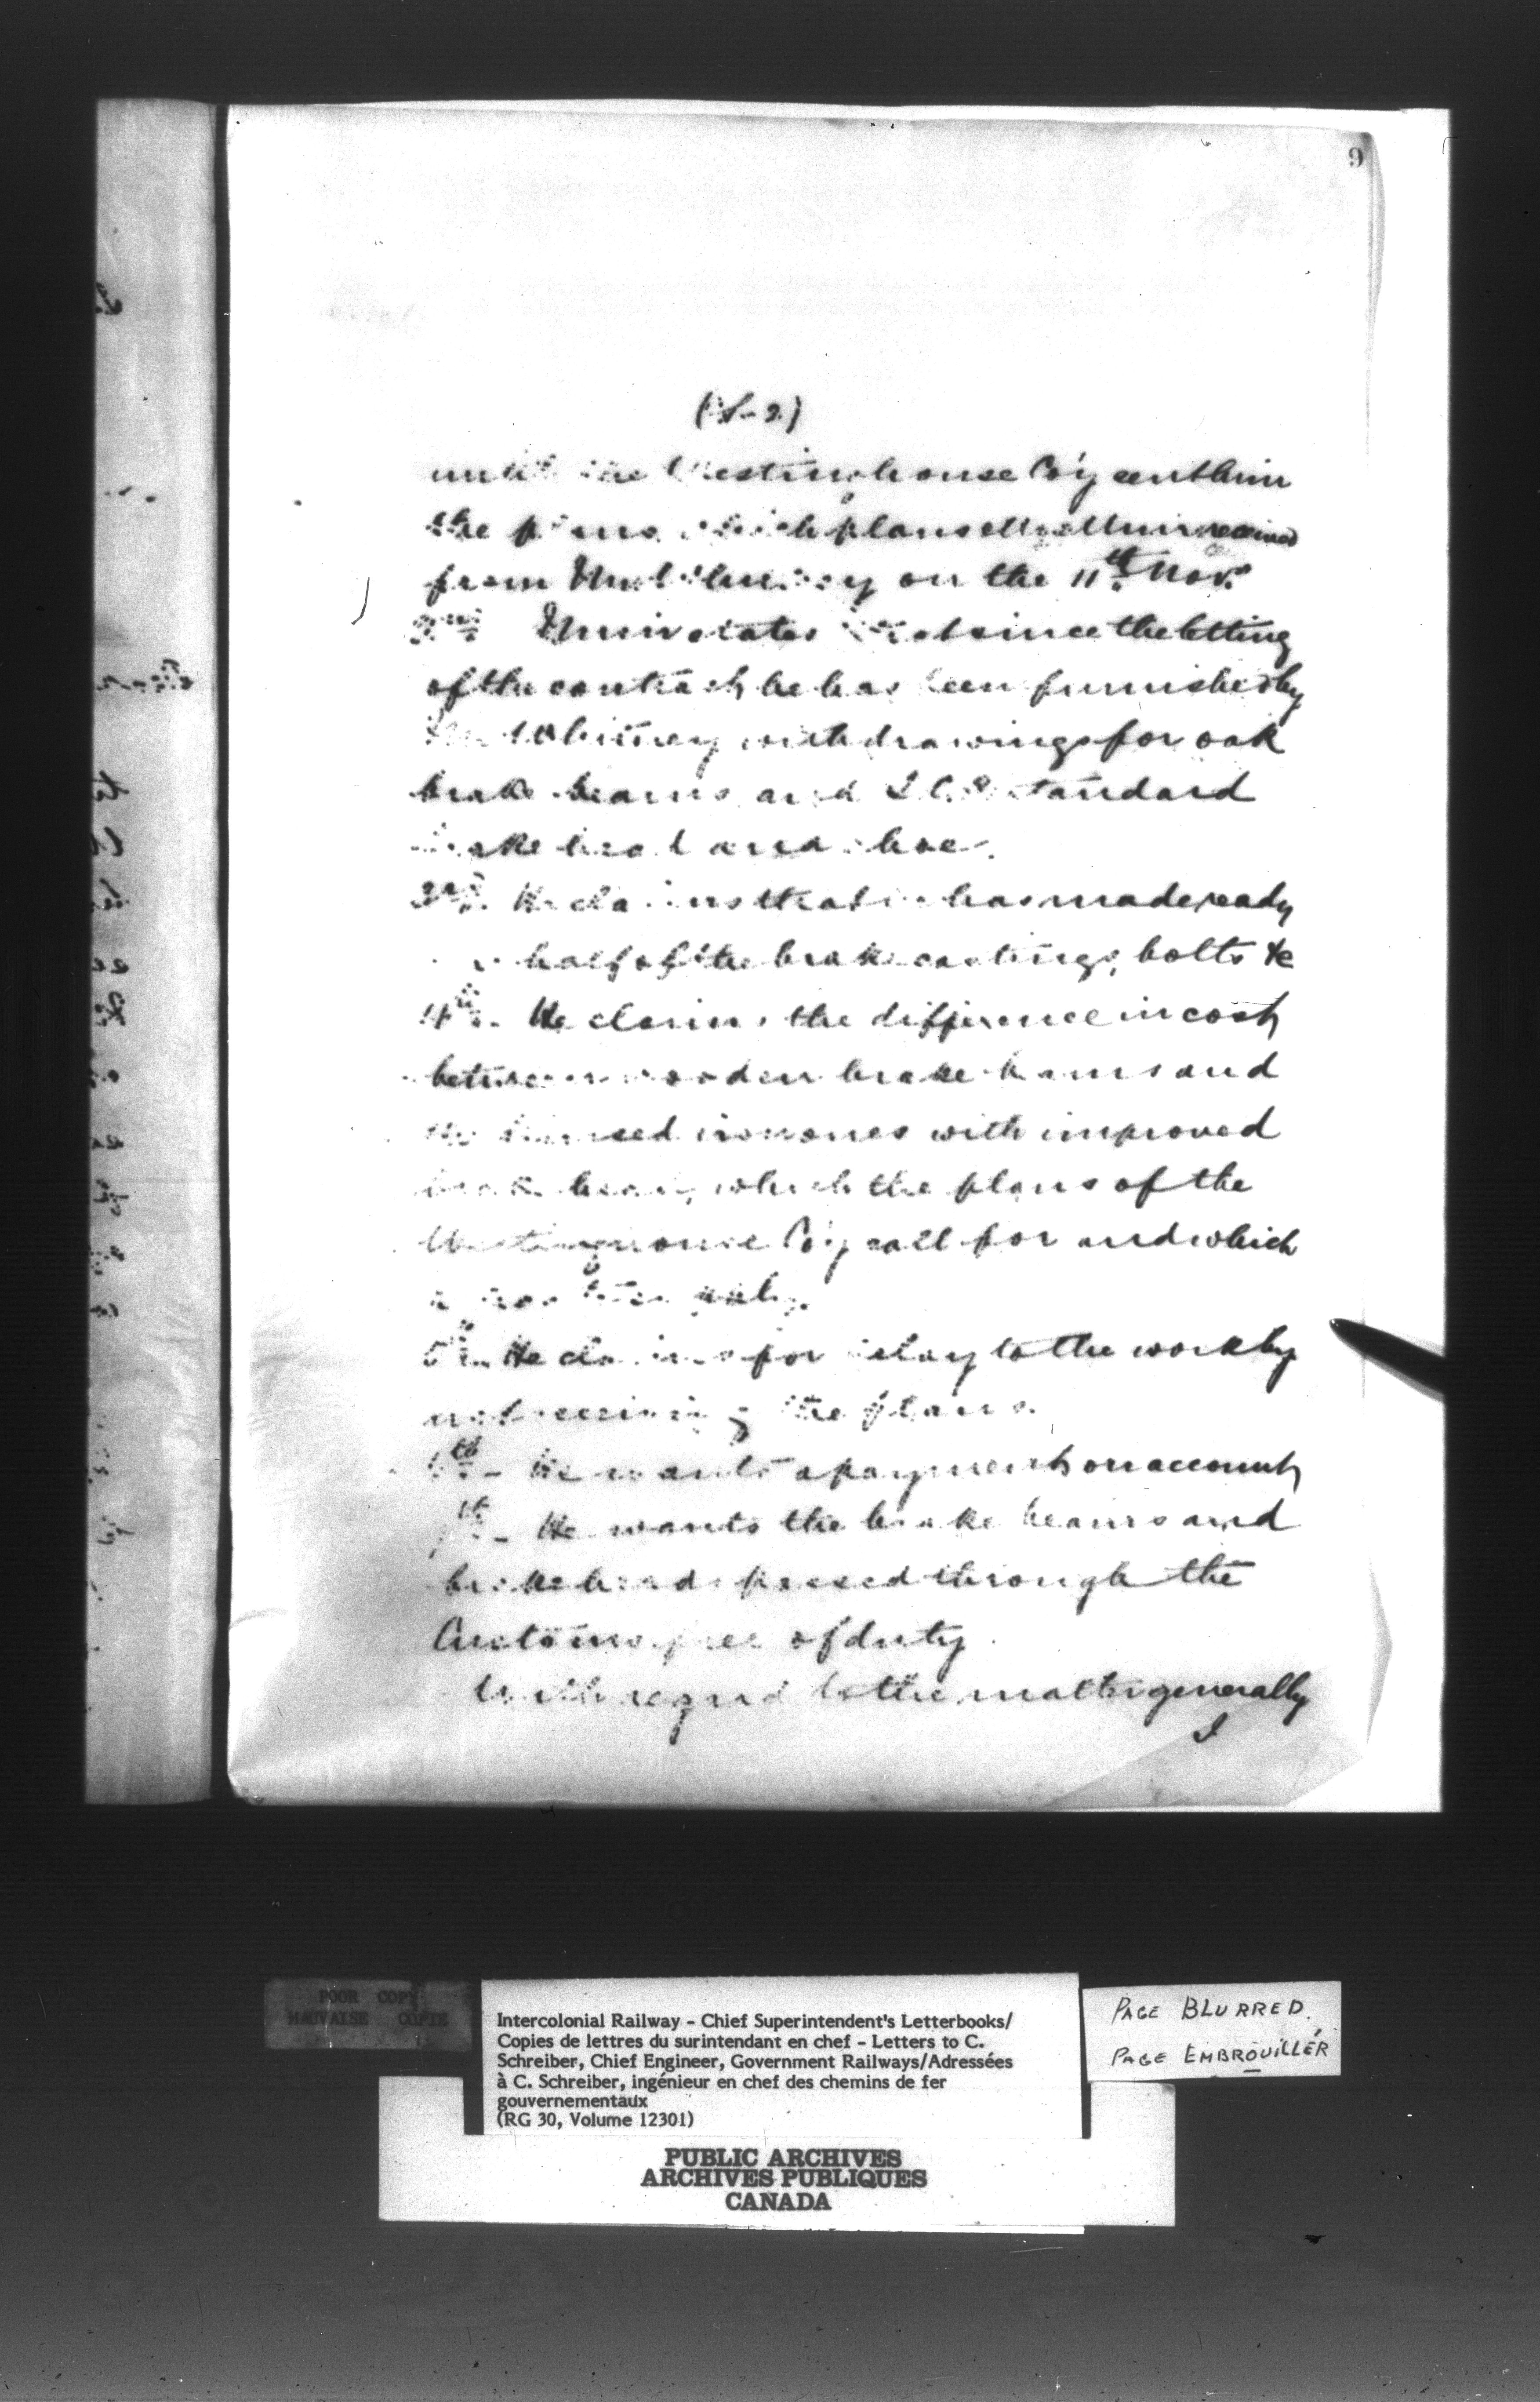 9
until the Westinghouse Co'y sent him
the plans which plans Mr Muir received
from Mr Whitney on the 11th Nov.
2nd Muir states that since the letting
of the contract he has been furnished by
Mr Whitney with drawings for oak
brake beams and I.C.R. standard
brake head and shoe.
3rd. He claims that he has made ready
half of the brake castings, bolts &c
4th. He claims the difference in cost
between wooden brake beams and
the trussed iron ones with improved
brake head, which the plans of the
Westinghouse Co'y call for and which
5th. He claims for delay to the work by
not receiving the plans.
6th - He wants a payment on account
7th - He wants the brake beams and
brake heads passed through the
Customs free of duty.
With regard to the matter generally
I
POOR COPY
MAUVAISE COPIE
Intercolonial Railway - Chief Superintendent's Letterbooks/
Copies de lettres du surintendant en chef - Letters to C.
Schreiber, Chief Engineer, Government Railways/Adressées
à C. Schreiber, ingénieur en chef des chemins de fer
gouvernementaux
(RG 30, Volume 12301)
PAGE BLURRED.
PAGE EMBROUILLÉR
PUBLIC ARCHIVES
ARCHIVES PUBLIQUES
CANADA